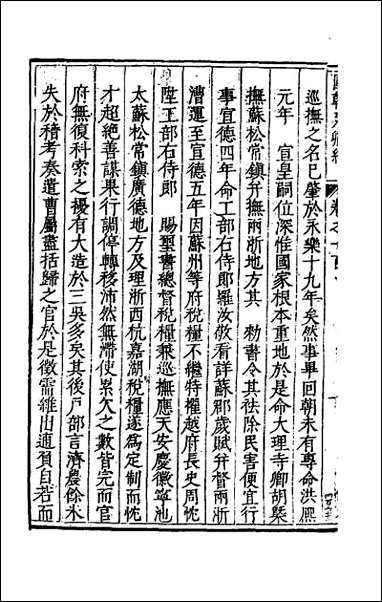 國朝列卿紀
巡撫之名已肇於永樂十九年矣然事畢回朝未有專命洪熙
元年　宣皇嗣位深惟國家根本重地於是命大理寺卿胡槩
撫蘇松常鎮幷撫兩浙地方其　勑書令其祛除民害便宜行
事宣德四年命工部右侍郎羅汝敬看詳蘇郡歲賦幷督兩浙
漕運至宣德五年因蘇州等府稅糧不繼特擢越府長史周忱
陞工部右侍郎　賜璽書總督稅糧兼巡撫應天安慶徽寧池
太蘇松常鎮廣德地方及理浙西杭嘉湖稅糧遂爲定制而忱
才超絶善謀果行調停轉移沛然無滯使累欠之數皆完而官
府無復科索之擾有大造於三吳多矣其後戸部言濟農餘米
失於稽考奏遣曹屬盡括歸之官於是徵需雜出逋負自若而